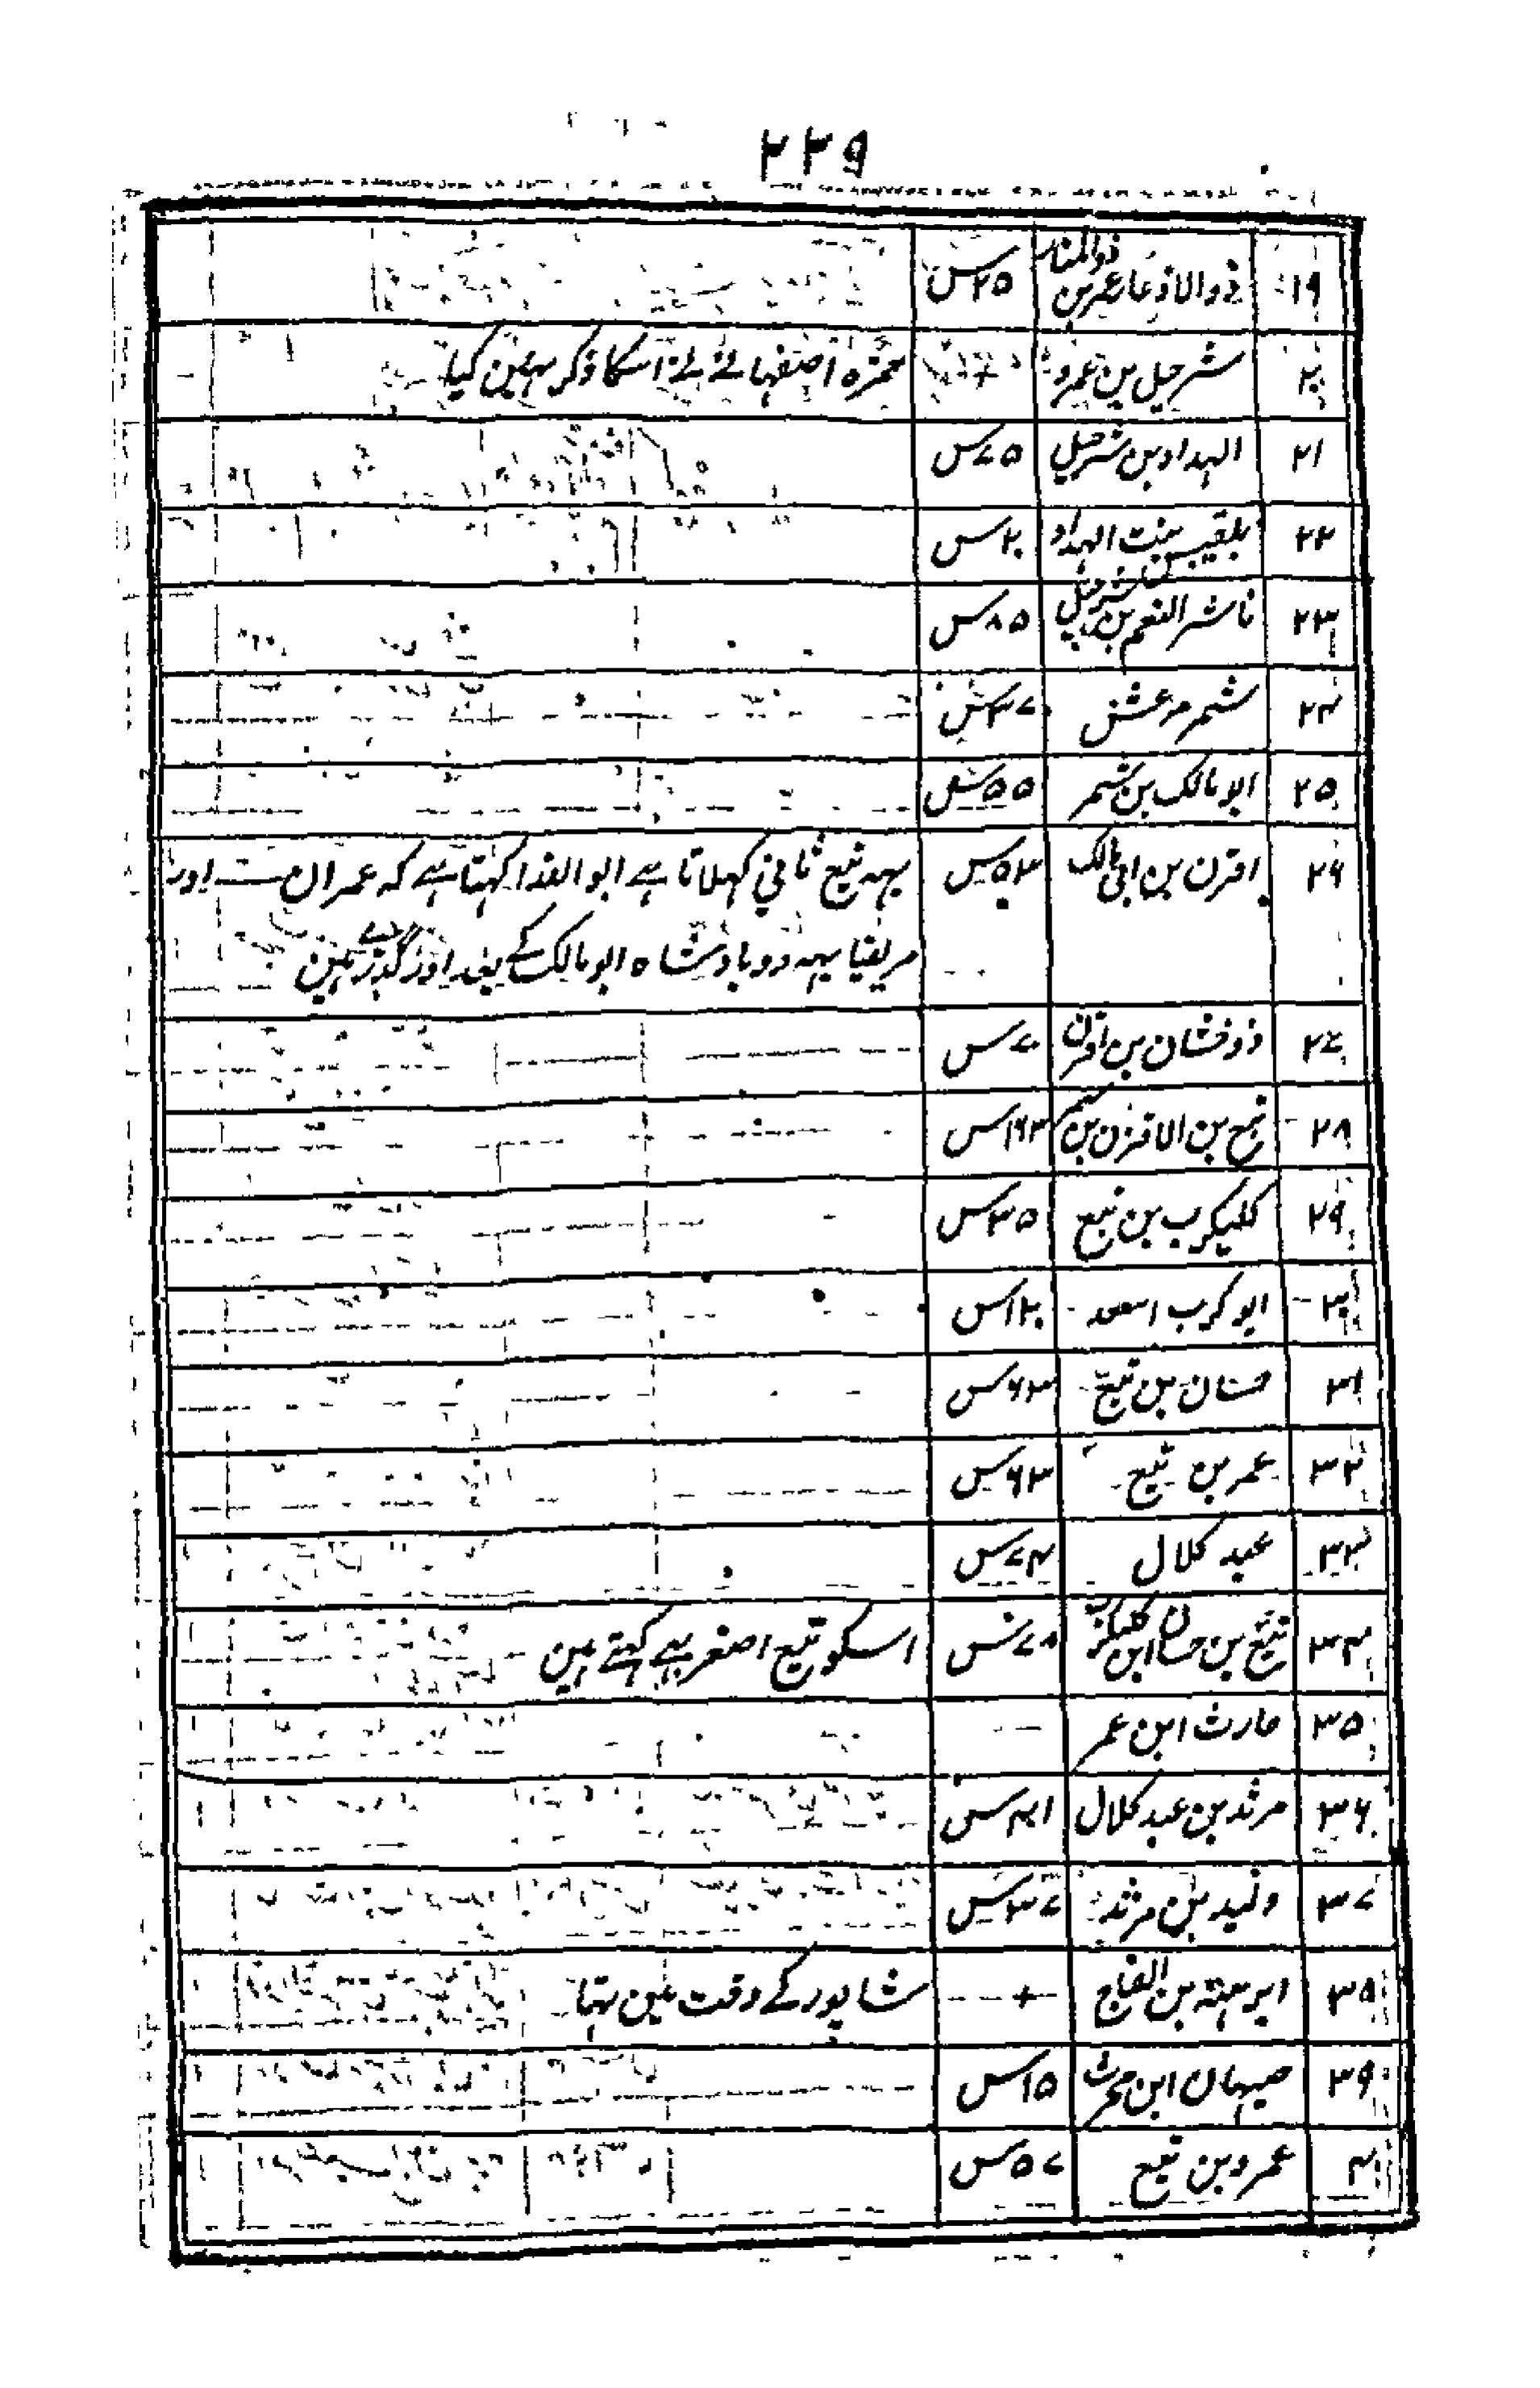 ۲۲۹
۱۹ ذو الاذعار عمر بن ذو المنار ۲۵ س
۲۰ شرحیل بن عمرو + حمزہ اصفہانے نے اسکا ذکر نہین کیا
۲۱ الہداد بن شرحیل ۷۵ س
۲۲ بلقیس بنت الہداد ۲۰ س
۲۳ ناشر النعم بن شرحبیل ۸۵ س
۲۴ شمر مرعش ۳۷ س
۲۵ ابو مالک بن شمر ۵۵ س
۲۶ اقرن بن ابی مالک ۵۳ س یہہ تبع ثانی کہلاتا ہے ابو الفدا کہتا ہے کہ عمران اور
مریفیا یہہ دو بادشاہ ابو مالک کے بعد اور گذرے ہین
۲۷ ذو خشان بن اقرن ۷ س
۲۸ تبع بن الاقرن بن شمر ۱۶۳ س
۲۹ کلیکرب بن تبع ۳۵ س
۳۰ ابو کرب اسعد ۱۲۰ س
۳۱ حسان بن تبع ۶۳ س
۳۲ عمر بن تبع ۶۳ س
۳۳ عبد کلال ۷۴ س
۳۴ تبع بن حسان ابن کلیکرب ۷۸ س اسکو تبع اصغر بہے کہتے ہین
۳۵ حارث ابن عمر
۳۶ مرثد بن عبد کلال ۴۱ س
۳۷ ولید بن مرثد ۳۷ س
۳۸ ابرہتہ بن الفاج + شاپور کے وقت مین تہا
۳۹ صیہان ابن محرث ۱۵ س
۴۰ عمرو بن تبع ۵۷ س